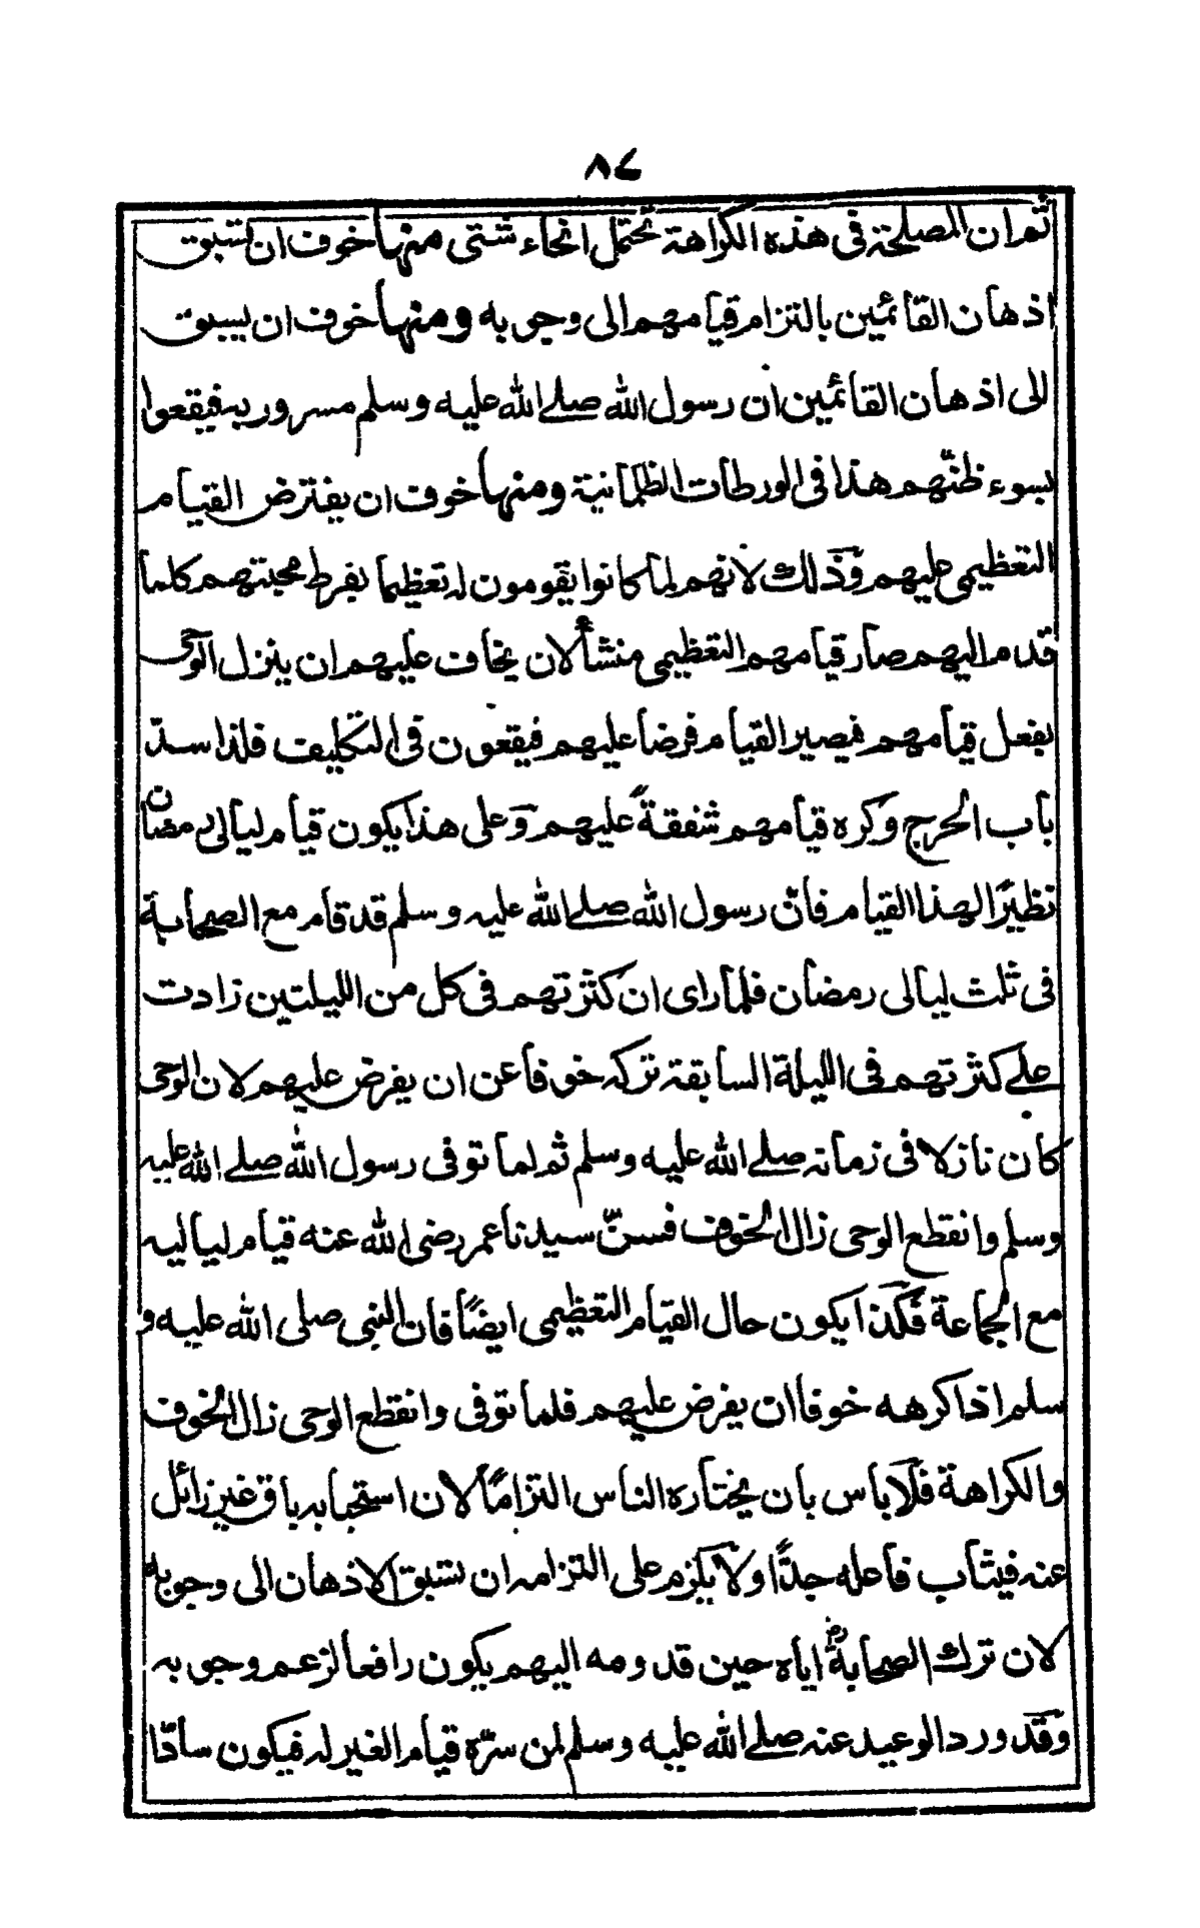 ٨٤
ثم ان المصلحة فى هذه الكراهة تحتمل انحاء شتى منها خوف ان تسبق
اذهان القائمين بالتزام قيامهم الى وجوبه ومنها خوف ان يسبق
الى اذهان القائمين ان رسول الله صلے الله عليه وسلم مسرور به فيقعوا
بسوء ظنّهم هذا فى الورطات الظلمانية ومنها خوف ان يفترض القيام
التعظيمى عليهم وذلك لانهم لما كانوا يقومون له تعظيما بفرط محبتهم كلما
قدم اليهم صار قيامهم التعظيمى منشأ لان يخاف عليهم ان ينزل الوحى
بفعل قيامهم فيصير القيام فرضا عليهم فيقعون فى التكليف فلذا سدّ
باب الحرج وكره قيامهم شفقةً عليهم وعلى هذا يكون قيام ليالى رمضان
نظيرًا لهذا القيام فانّ رسول الله صلے الله عليه وسلم قد قام مع الصحابة
فى ثلث ليالى رمضان فلما راى ان كثرتهم فى كل من الليلتين زادت
علے كثرتهم فى الليلة السابقة تركه خوفا عن ان يفرض عليهم لان الوحى
كان نازلا فى زمانه صلے الله عليه وسلم ثم لما توفى رسول الله صلے الله عليه
وسلم وانقطع الوحى زال الخوف فسنّ سيدنا عمر رضى الله عنه قيام لياليه
مع الجماعة فكذا يكون حال القيام التعظيمى ايضًا فان النبى صلى الله عليه و
سلم اذا كرهه خوفا ان يفرض عليهم فلما توفى وانقطع الوحى زال الخوف
والكراهة فلا باس بان يختاره الناس التزامًا لان استحبابه باق غير زائل
عنه فيثاب فاعله جدًّا ولا يلزم على التزامه ان تسبق الاذهان الى وجوبه
لان ترك الصحابةؓ اياه حين قدومه اليهم يكون رافعا لزعم وجوبه
وقد ورد الوعيد عنه صلے الله عليه وسلم لمن سرّه قيام الغير له فيكون سادّا